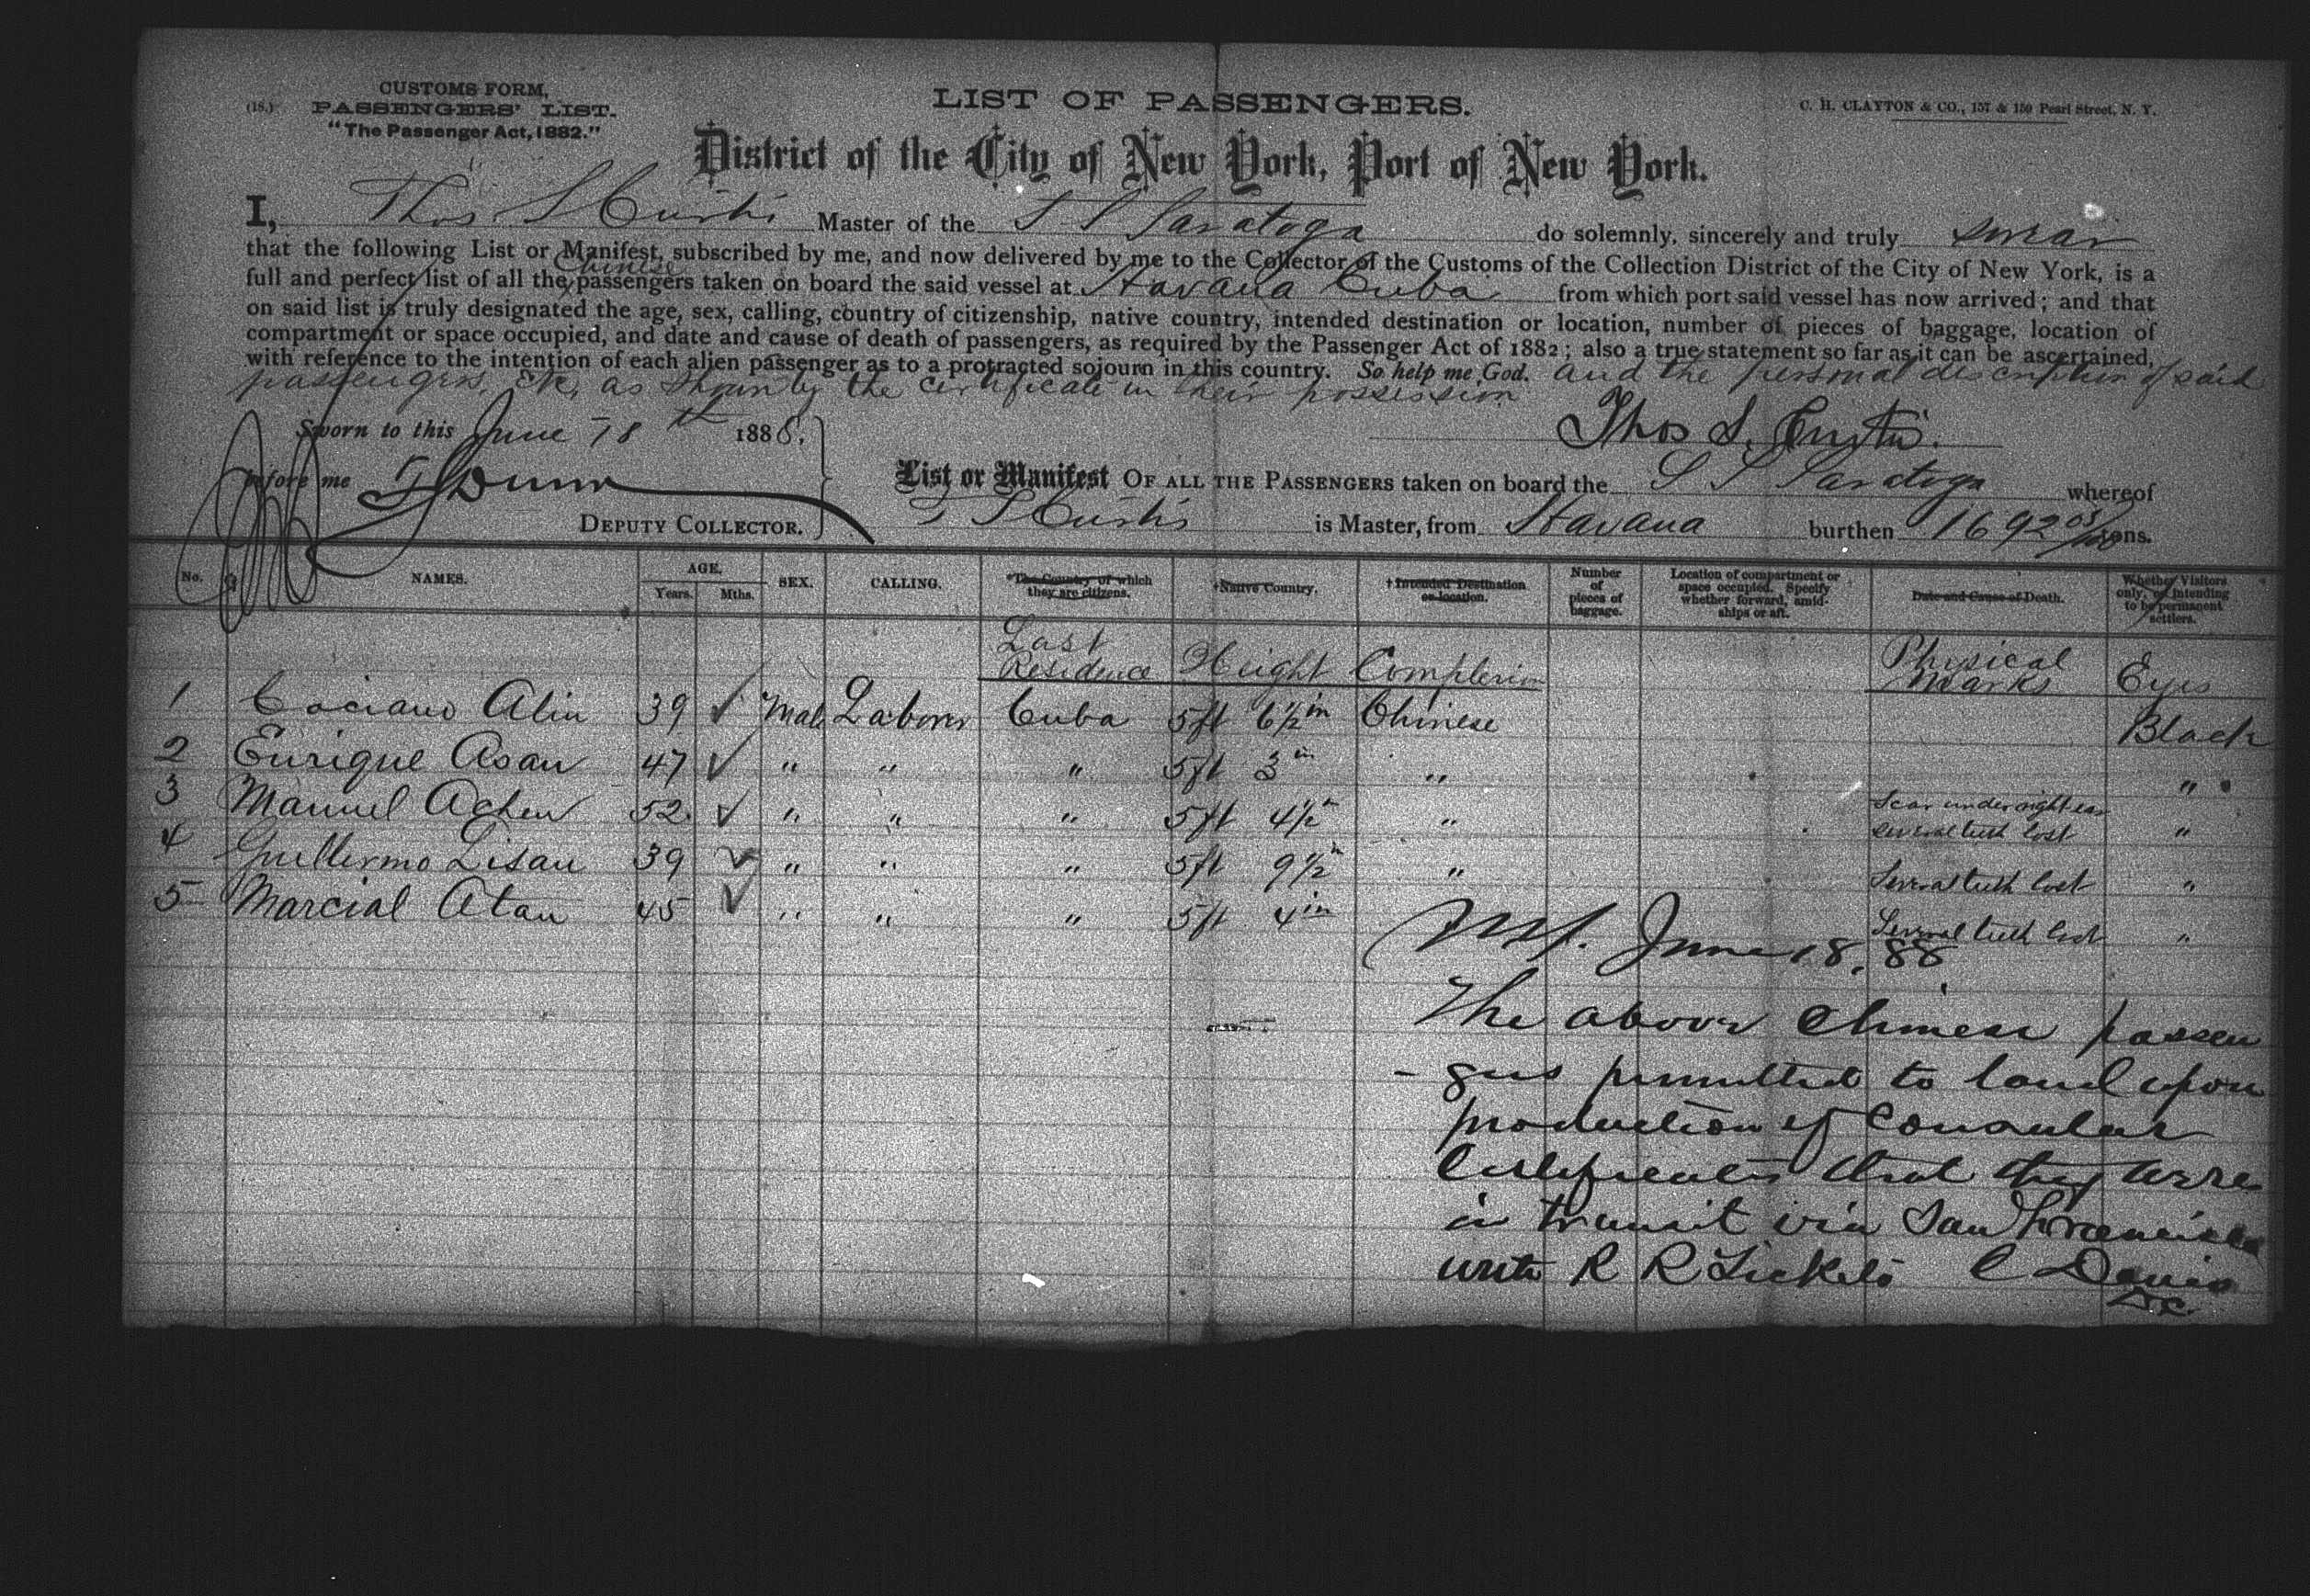 CUSTOMS FORM,
(18.) PASSENGERS' LIST.
"The Passenger Act, 1882."
LIST OF PASSENGERS.
C. H. CLAYTON & CO., 157 & 159 Pearl Street, N. Y.
District of the City of New York, Port of New York.
I, Thos S Curtis Master of the S S Saratoga do solemnly, sincerely and truly swear
that the following List or Manifest, subscribed by me, and now delivered by me to the Collector of the Customs of the Collection District of the City of New York, is a
Chinese
full and perfect list of all the passengers taken on board the said vessel at Havana Cuba from which port said vessel has now arrived; and that
on said list is truly designated the age, sex, calling, country of citizenship, native country, intended destination or location, number of pieces of baggage, location of
compartment or space occupied, and date and cause of death of passengers, as required by the Passenger Act of 1882; also a true statement so far as it can be ascertained,
with reference to the intention of each alien passenger as to a protracted sojourn in this country. So help me God. and the personal description of said
passengers, &c, as shown by the certificate in their possession
Sworn to this June 18th 1888.
Thos S. Curtis.
before me
DEPUTY COLLECTOR.
List or Manifest OF ALL THE PASSENGERS taken on board the S S Saratoga whereof
T S Curtis is Master, from Havana burthen 1692 tons.
No. NAMES. AGE. Years. Mths. SEX. CALLING. *The Country of which they are citizens. †Native Country. †Intended Destination or location. Number of pieces of baggage. Location of compartment or space occupied. Specify whether forward, amidships or aft. Date and Cause of Death. Whether Visitors only, or intending to be permanent settlers.
Last Residence Height Complexion Physical Marks Eyes
1 Cociano Alin 39 ✓ Male Laborer Cuba 5ft 6½in Chinese Black
2 Enrique Asan 47 ✓ " " " 5ft 3in " "
3 Manuel Achen 52 ✓ " " " 5ft 4½" " Scar under right ear several teeth lost "
4 Guillermo Lisan 39 ✓ " " " 5ft 9½" " Several teeth lost "
5 Marcial Atan 45 ✓ " " " 5ft 4in Several teeth lost "
June 18, 88
The above Chinese passen
-gers permitted to land upon
production of Consular
Certificates that they were
in transit via San Francisco
with R R Tickets C Davis
DC